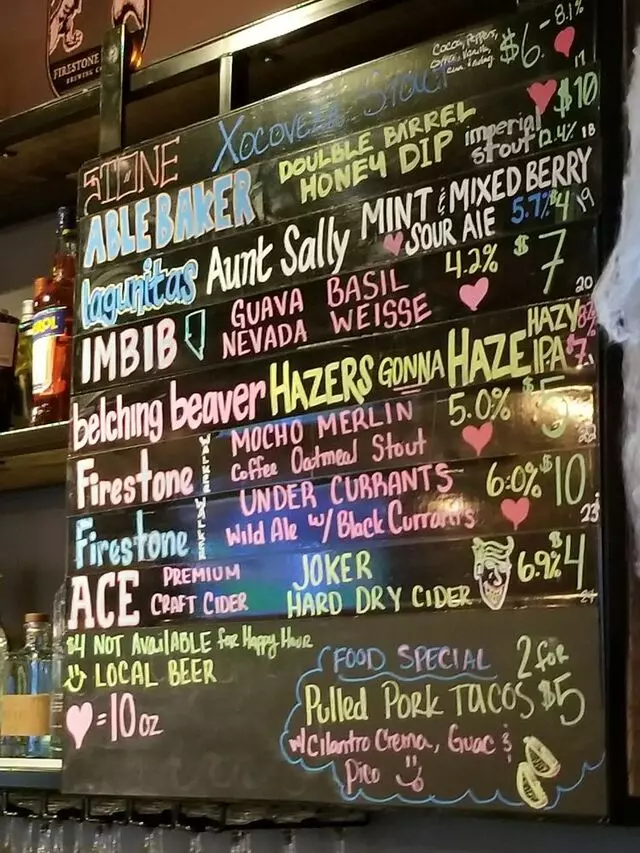 FIRESTONE
BREWING CO
STONE XOCOVEZA STOUT Cocoa, Peppers, $6 - 8.1%
coffee, Vanilla,
17
ABLE BAKER DOUBLE BARREL HONEY DIP imperial stout 12.4% $10
18
lagunitas Aunt Sally MINT & MIXED BERRY SOUR ALE 5.7% $4
19
IMBIB GUAVA BASIL NEVADA WEISSE 4.2% $7
20
belching beaver HAZERS GONNA HAZE HAZY IPA $7
Firestone WALKER MOCHO MERLIN Coffee Oatmeal Stout 5.0% $5
22
Firestone WALKER UNDER CURRANTS Wild Ale w/ Black Currants 6.0% $10
23
ACE PREMIUM CRAFT CIDER JOKER HARD DRY CIDER 6.9% $4
24
$4 NOT AVAILABLE for Happy Hour
LOCAL BEER
♥ = 10 oz
FOOD SPECIAL 2 for
Pulled Pork TACOS $5
w/ Cilantro Crema, Guac &
Pico